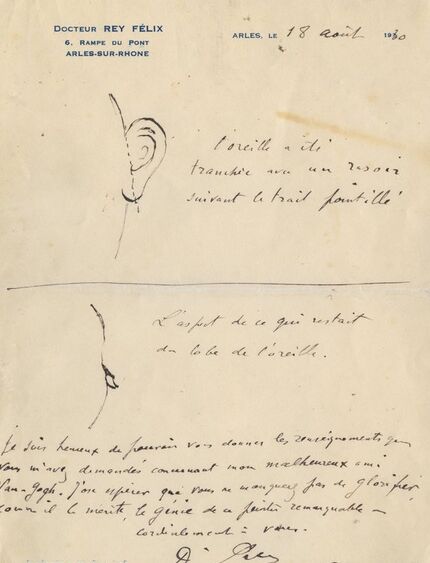 DOCTEUR REY FÉLIX
6, RAMPE DU PONT
ARLES-SUR-RHONE
ARLES, LE 18 août 1930
l'oreille a été
tranchée avec un rasoir
suivant le trait pointillé
L'aspect de ce qui restait
du lobe de l'oreille.
Je suis heureux de pouvoir vous donner les renseignements que
vous m'avez demandés concernant mon malheureux ami
Van-Gogh. J'ose espérer que vous ne manquerez pas de glorifier,
comme il le mérite, le génie de ce peintre remarquable –
cordialement à vous.
Dr Rey